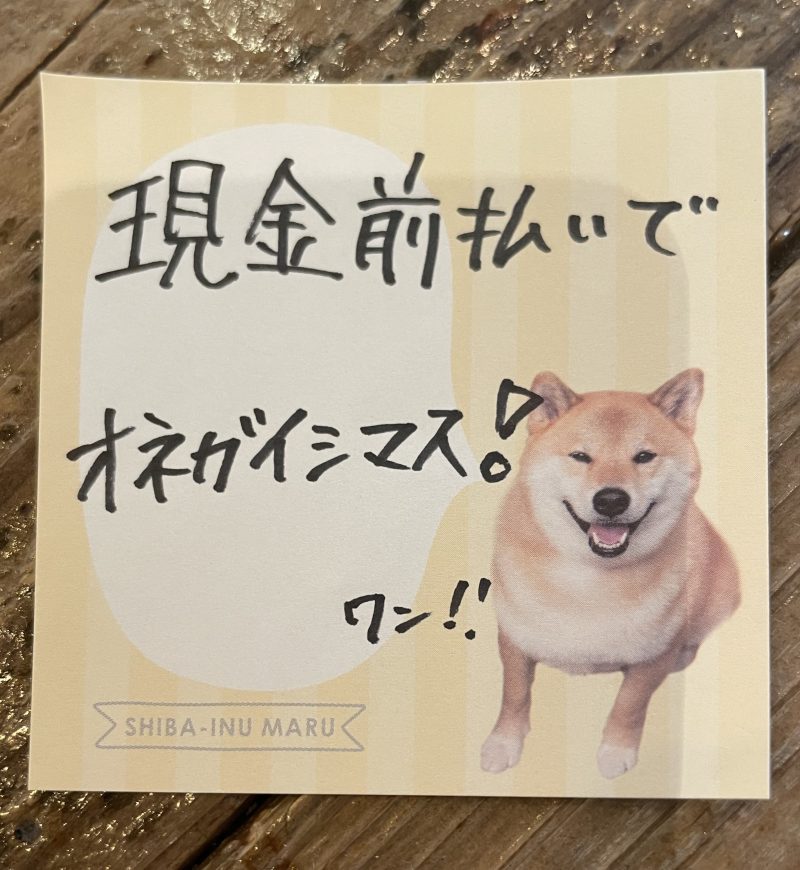 現金前払いで
オネガイシマス!
ワン!!
SHIBA-INU MARU